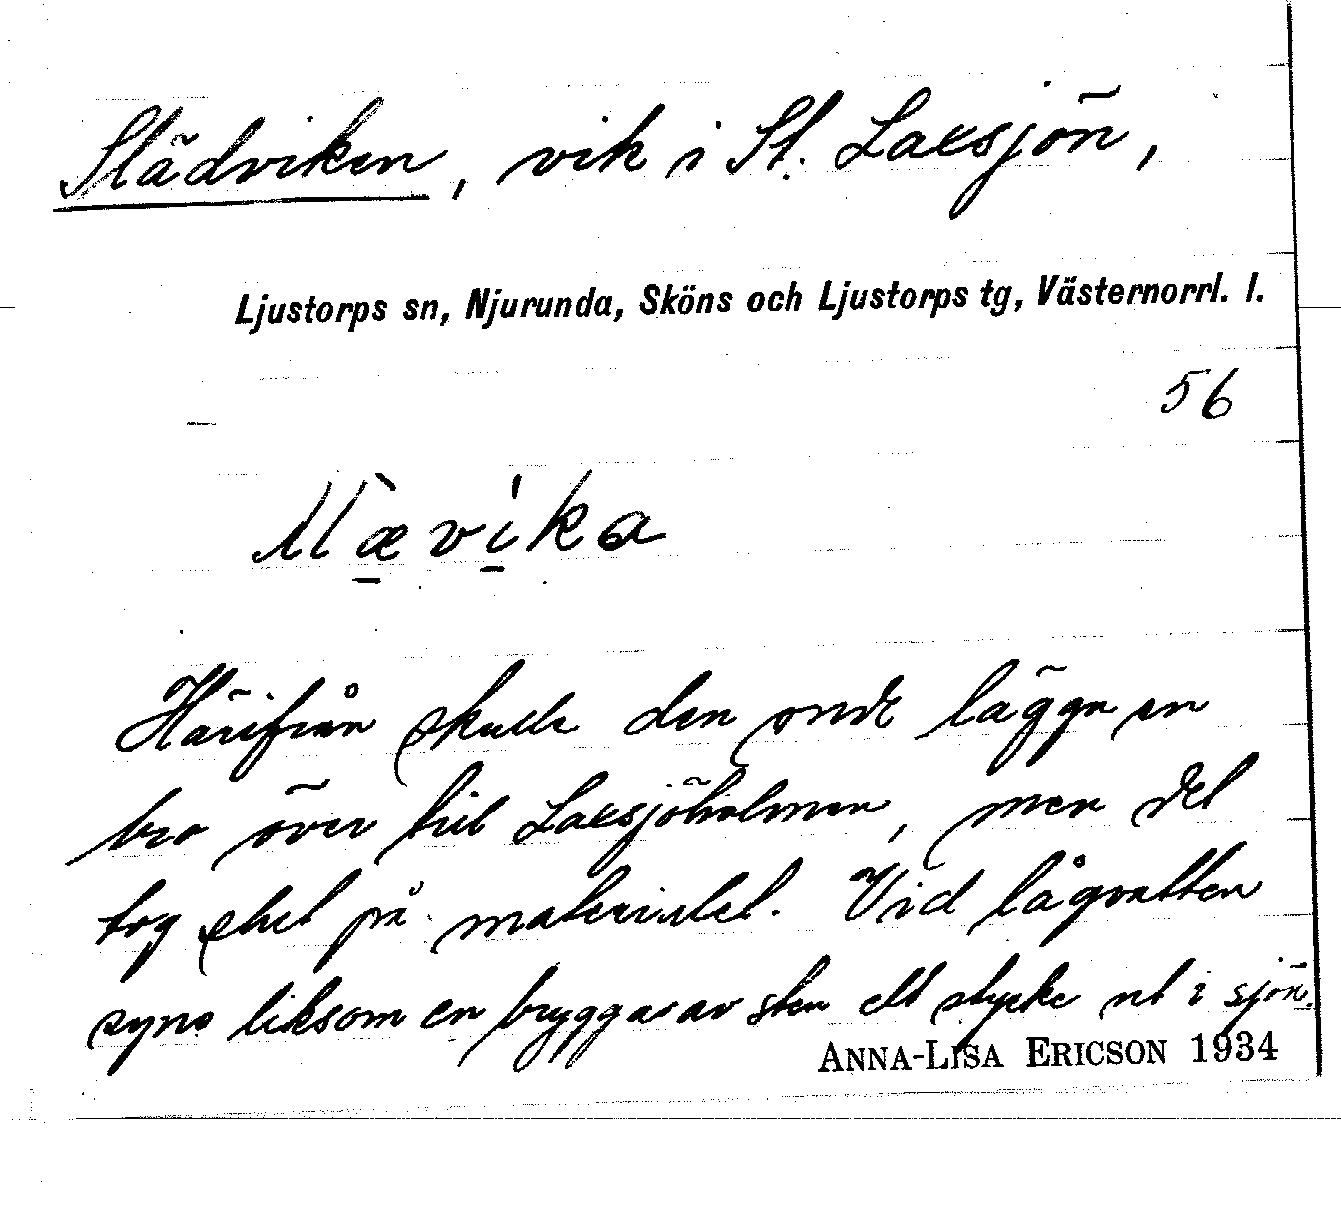 Slädviken, vik i St. Laxsjön,
Ljustorps sn, Njurunda, Sköns och Ljustorps tg, Västernorrl. l.
56
vika
Härifrån skulle den onde lägga en
bro över till Laxsjöholmen, men det
tog slut på materialet. Vid lågvatten
syns liksom en brygga av sten ett stycke ut i sjön.
ANNA-LISA ERICSON 1934